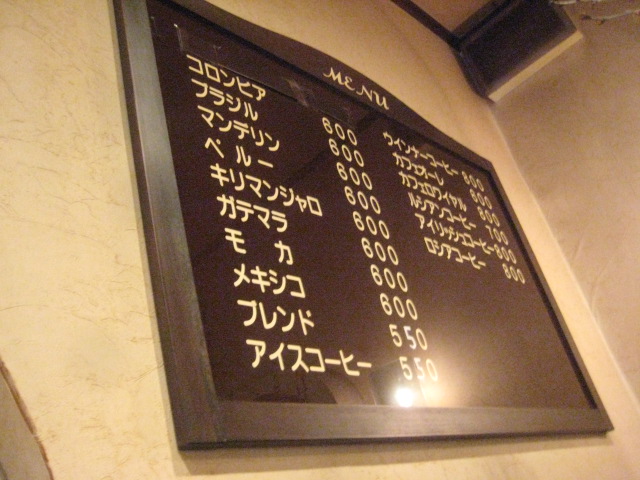 MENU
コロンビア 600
ブラジル 600
マンデリン 600
ペルー 600
キリマンジャロ 600
ガテマラ 600
モカ 600
メキシコ 600
ブレンド 550
アイスコーヒー 550
ウインナーコーヒー 800
カフェオーレ 800
カフェロワイヤル 800
ルシアンコーヒー 700
アイリッシュコーヒー 800
ロシアコーヒー 800